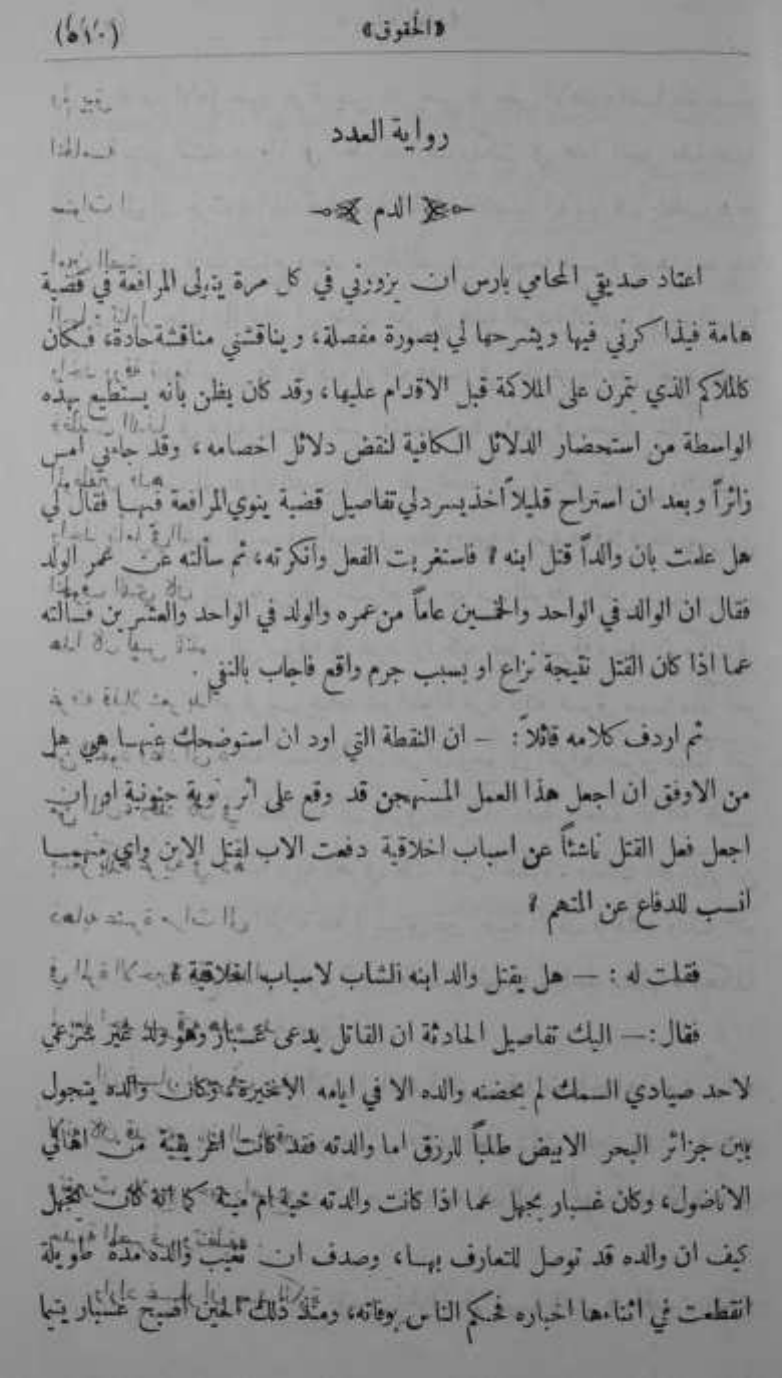 «الحقوق» (٥١٠)
رواية العدد
الدم
اعتاد صديقي المحامي بارس ان يزورني في كل مرة يتولى المرافعة في قضية
هامة فيذاكرني فيها ويشرحها لي بصورة مفصلة، ويناقشني مناقشة حادة، فكان
كالملاكم الذي يتمرن على الملاكمة قبل الاقدام عليها، وقد كان يظن بأنه يستطيع بهذه
الواسطة من استحضار الدلائل الكافية لنقض دلائل اخصامه، وقد جاءني امس
زائراً وبعد ان استراح قليلاً اخذ يسرد لي تفاصيل قضية ينوي المرافعة فيها فقال لي
هل علمت بان والداً قتل ابنه ؟ فاستغربت الفعل وانكرته، ثم سألته عن عمر الولد
فقال ان الوالد في الواحد والخمسين عاماً من عمره والولد في الواحد والعشرين فسألته
عما اذا كان القتل نتيجة نزاع او بسبب جرم واقع فاجاب بالنفي .
ثم اردف كلامه قائلاً : – ان النقطة التي اود ان استوضحك عنها هي هل
من الاوفق ان اجعل هذا العمل المستهجن قد وقع على اثر نوبة جنونية او ان
اجعل فعل القتل ناشئاً عن اسباب اخلاقية دفعت الاب لقتل الابن واي منهما
انسب للدفاع عن المتهم ؟
فقلت له : – هل يقتل والد ابنه الشاب لاسباب اخلاقية ؟
فقال : – اليك تفاصيل الحادثة ان القاتل يدعى غسبار وهو ولد غير شرعي
لاحد صيادي السمك لم يحضنه والده الا في ايامه الاخيرة، وكان والده يتجول
بين جزائر البحر الابيض طلباً للرزق اما والدته فقد كانت اغريقية من اهالي
الاناضول، وكان غسبار يجهل عما اذا كانت والدته حية ام ميتة كما انه كان يجهل
كيف ان والده قد توصل للتعارف بها، وصدف ان تغيب والده مدة طويلة
انقطعت في اثناءها اخباره فحكم الناس بوفاته، ومنذ ذلك الحين اصبح غسبار يتيما